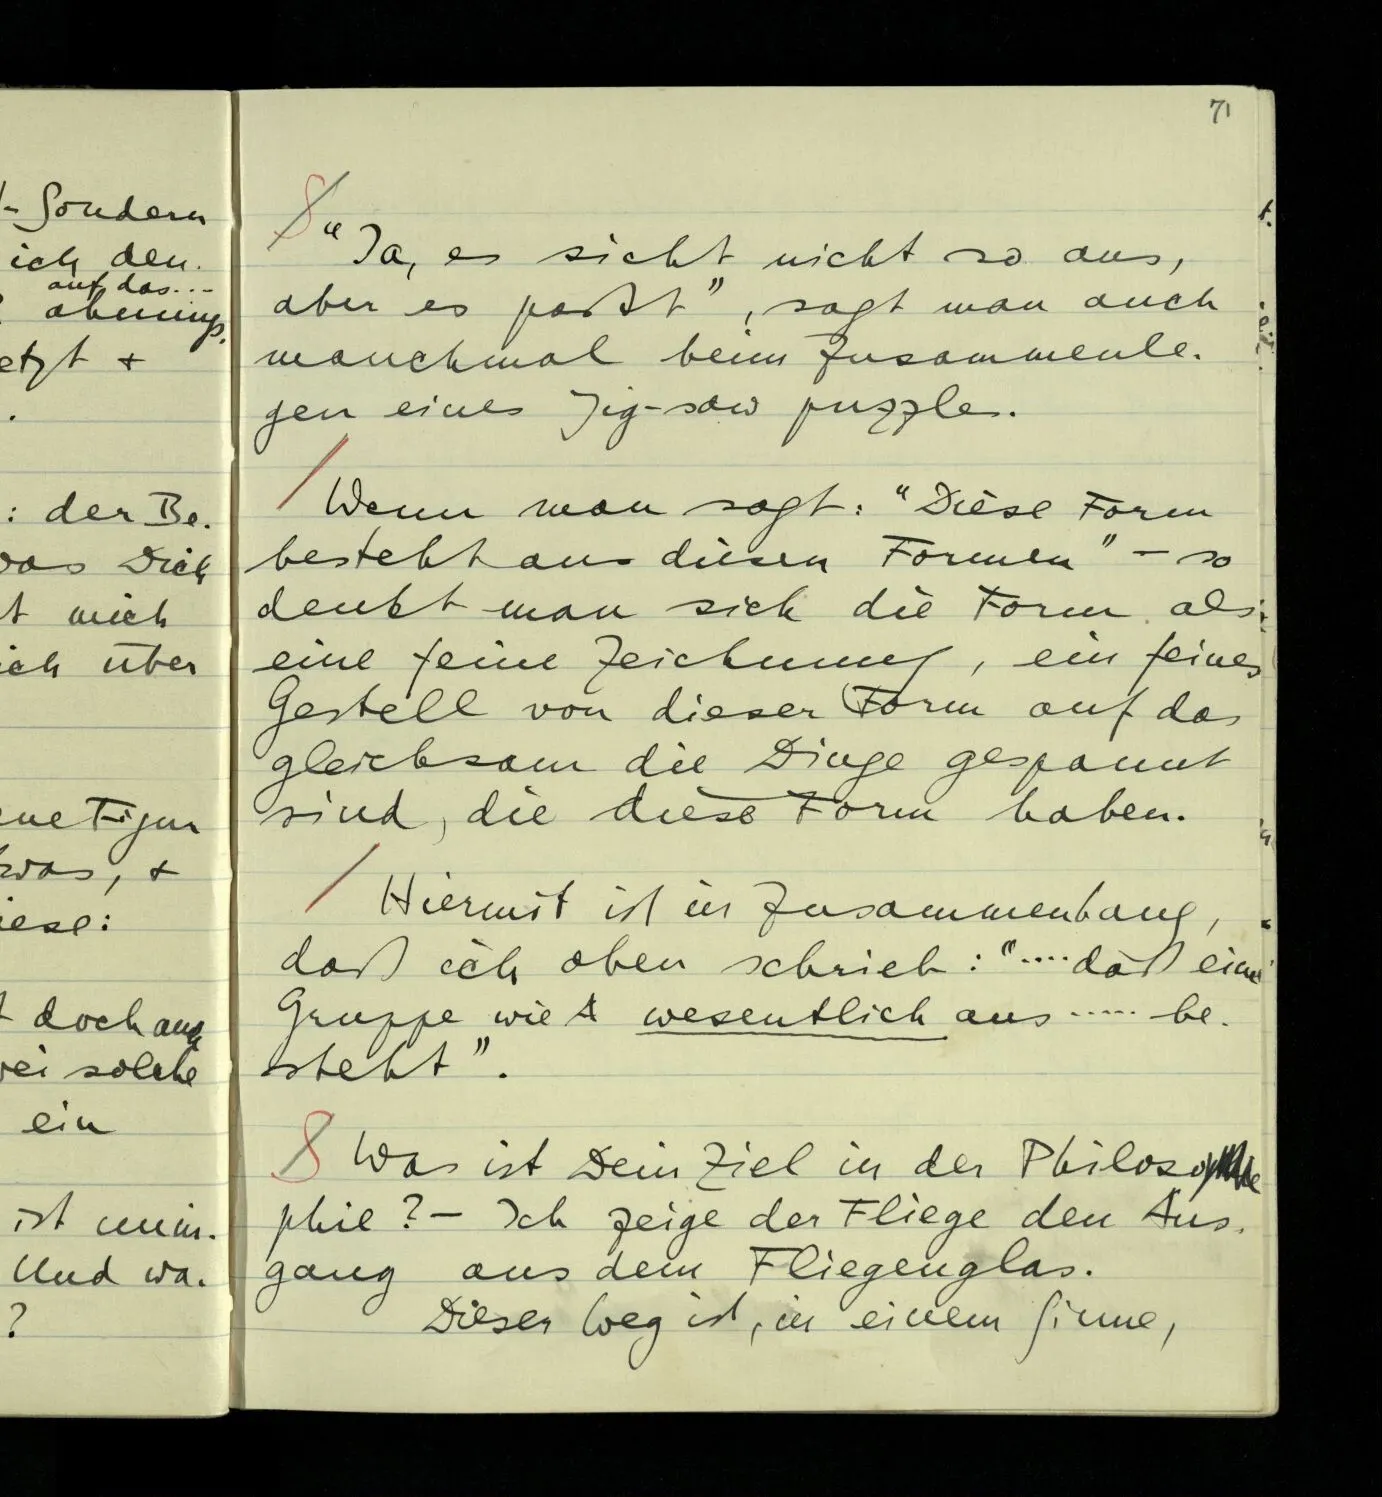 - Sondern
ich den
auf das...
ahmung,
etzt +
.
: der Be.
was Dich
t mich
ich über
ene Figur
was, +
iese:
t doch auch
wei solche
ein
ist unin.
Und wa.
?
71
"Ja, es sieht nicht so aus,
aber es paßt", sagt man auch
manchmal beim Zusammenle.
gen eines Jig-saw puzzles.
Wenn man sagt: "Diese Form
besteht aus diesen Formen" – so
denkt man sich die Form als
eine feine Zeichnung, ein feines
Gestell von dieser Form auf das
gleichsam die Dinge gespannt
sind, die diese Form haben.
Hiermit ist in Zusammenhang,
daß ich oben schrieb: "....daß eine
Gruppe wie A wesentlich aus ..... be.
steht".
Was ist Dein Ziel in der Philoso
phie? – Ich zeige der Fliege den Aus.
gang aus dem Fliegenglas.
Dieser Weg ist, in einem Sinne,